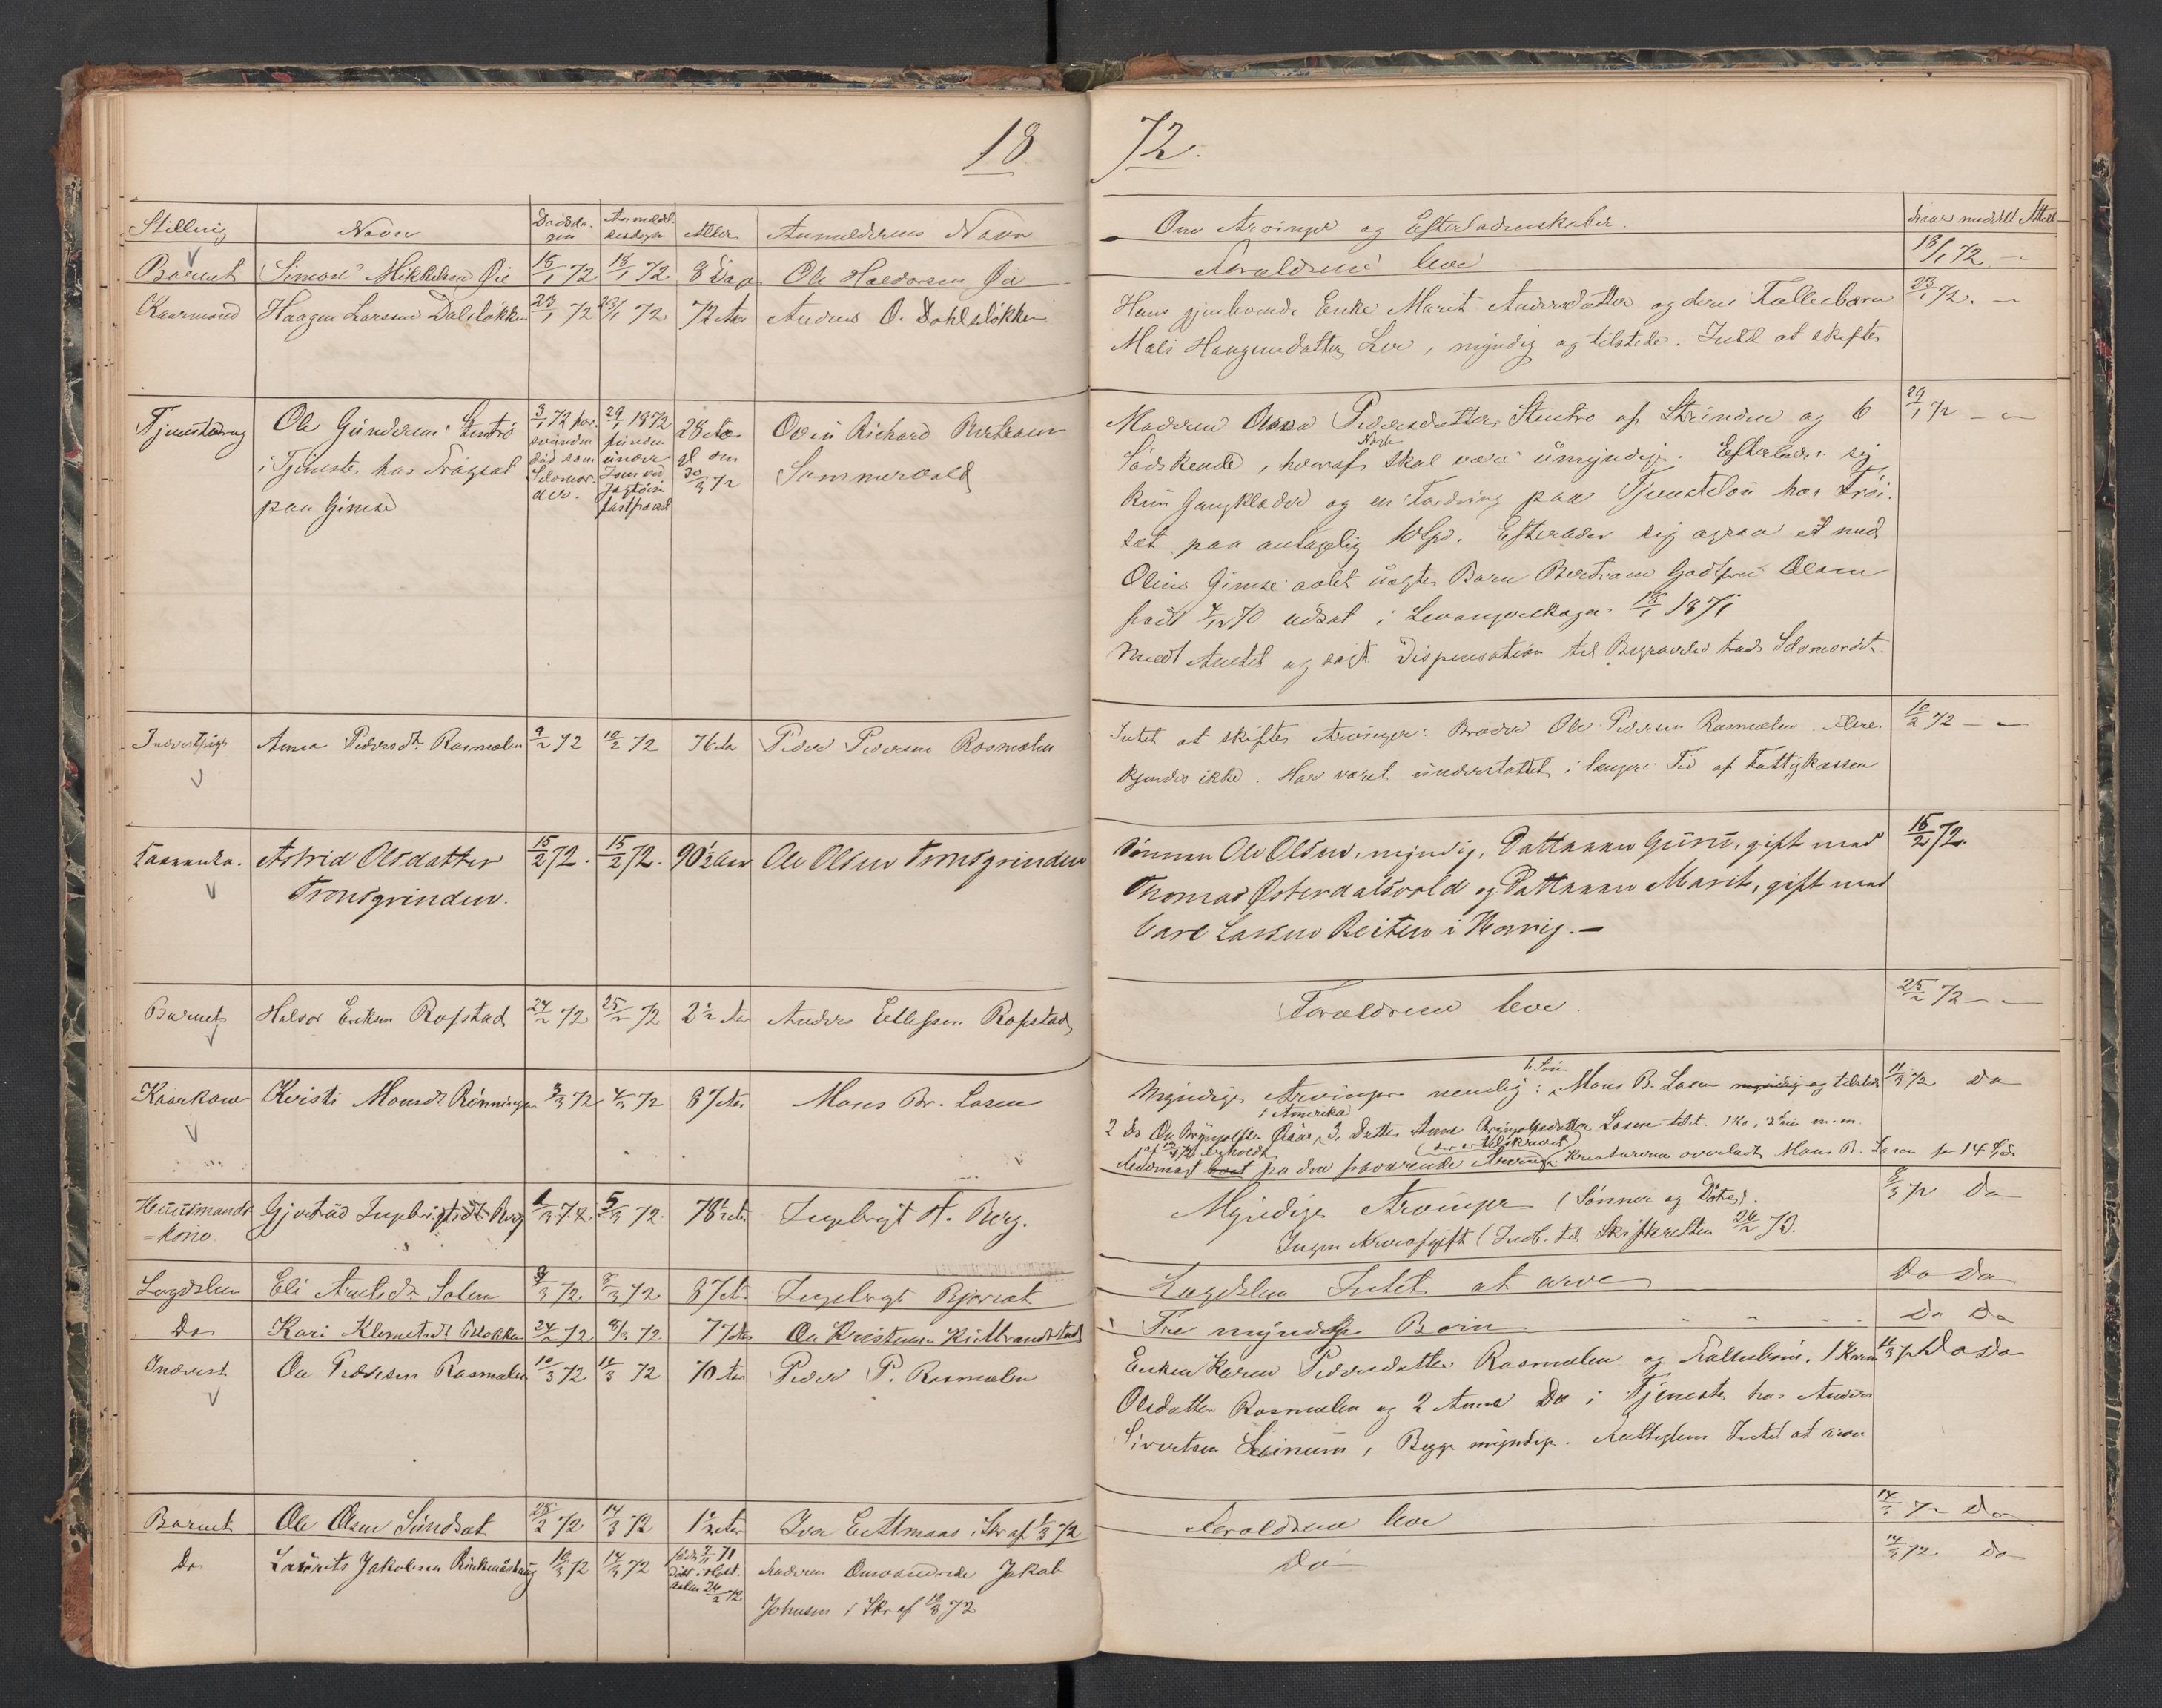 18
72.
Stilling Navn Dødsda- Anmeldel- Alder Anmelderens Navn
gen sesdagen
Om Arvinger og Efterladenskaber. meddelt Attest
Barnet Simon Mikkelsen Øie 15/1 72 18/1 72 8 Dage Ole Haldorsen Øie
Forældrene leve 18/1 72 —
Kaarmand Haagen Larsen Dalsløkken 23/1 72 23/1 72 72 Aar Anders O. Dahlsløkken
Hans gjenlevende Enke Marit Andersdatter og deres Fællesbarn 23/1 72. —
Mali Haagensdatter Ler, myndig og tilstede. Intet at skifte
Tjenestedreng Ole Gundersen Stentrø 3/1 72 for- 29/1 1872 28 Aar Ovin Richard Bertram
i Tjeneste hos Trøgset svunden 30/3 72 Sommervold
paa Gimse død som Selvmor- der.
Moderen Anna Pedersdatter Stentrø af Strinden og 6 29/1 72 — —
Sødskende, hvoraf Nogle skal være umyndige. Efterlader sig
kun Gangklæder og en Fordring paa Tjenesteløn hos Trøi-
set paa antagelig 10 Spd. Efterlader sig ogsaa et med
Oline Gimse avlet uægte Barn Bertram Godtfred Olsen
født 4/12 70 udsat i Levangerskogen 18/1 1871
Meldt Amtet og søgt Dispensation til Begravelse trods Selvmordet.
Inderstpige Anna Pedersdtr Rosmælen 9/2 72 10/2 72 76 Aar Peder Pedersen Rosmælen
Intet at skifte Arvinger: Broder Ole Pedersen Rosmælen. Flere 10/2 72 — —
kjendes ikke. Har været understøttet i længere Tid af Fattigkassen
Astrid Olsdatter 15/2 72. 15/2 72. 90 1/2 Aar Ole Olsen Tronsgrinden
Tronsgrinden.
Sønnen Ole Olsen, myndig, Datteren Guru, gift med 15/2 72.
Thomas Østerdalsvold og Datteren Marit, gift med
Carl Larsen Reiten i Horrig. —
Barnet Halvor Eriksen Rofstad 24/2 72 25/2 72 2 1/2 Aar Anders Ellefsen Rofstad
Forældrene leve 25/2 72 — —
Kaarkone Kristi Monsdtr Rønningen 3/3 72 4/3 72 87 Aar Mons Br. Losen
Myndige Arvinger nemlig: 1. Søn Mons B. Losen myndig og tilstede 11/3 72 Do
2 Do Ole Brynjolfsen Øiaas i Amerika, 3. Datter Anne Brynjolfsdatter Losen
Kreaturerne overladt Mons B. Losen for 14 Spd
Huusmands Gjertrud Ingebrigtsdtr Berg 1/3 72 5/3 72 78 1/2 Aar Ingebrigt A. Berg.
=kone
Myndige Arvinger (Sønner og Døtre). 8/3 72 Do
Ingen Arveafgift (Indb. til Skifteretten 24/2 73.
Lægdslem Eli Arntsdtr Solem 4/3 72 8/3 72 87 Aar Ingebrigt Bjørset
Lægdslem Intet at arve Do Do
Do Kari Klemetsdtr 24/2 72 8/3 72 77 Aar Ole Kristensen
Tre myndige Børn Do Do
Inderst Ole Pedersen Rosmælen 10/3 72 11/3 72 70 Aar Peder P. Rosmælen
Enken Karen Pedersdatter Rosmælen og Fællesbørn. 1 Karen 11/3 72 Do Do
Olsdatter Rosmælen og 2 Anne Do i Tjeneste hos Anders
Sivertsen Leinum, Begge myndige. Fattiglem Intet at arve
Barnet Ole Olsen Sundset 28/2 72 14/3 72 1 1/2 Aar Iver Entmans i Skr af 1/3 72
Forældrene leve 14/3 72 Do
Do Laurits Jakobsen 14/3 72 født 2/11 71 Faderen Omvandrende Jakob
Johnsen i Skr af 10/3 72
Do 14/3 72 Do